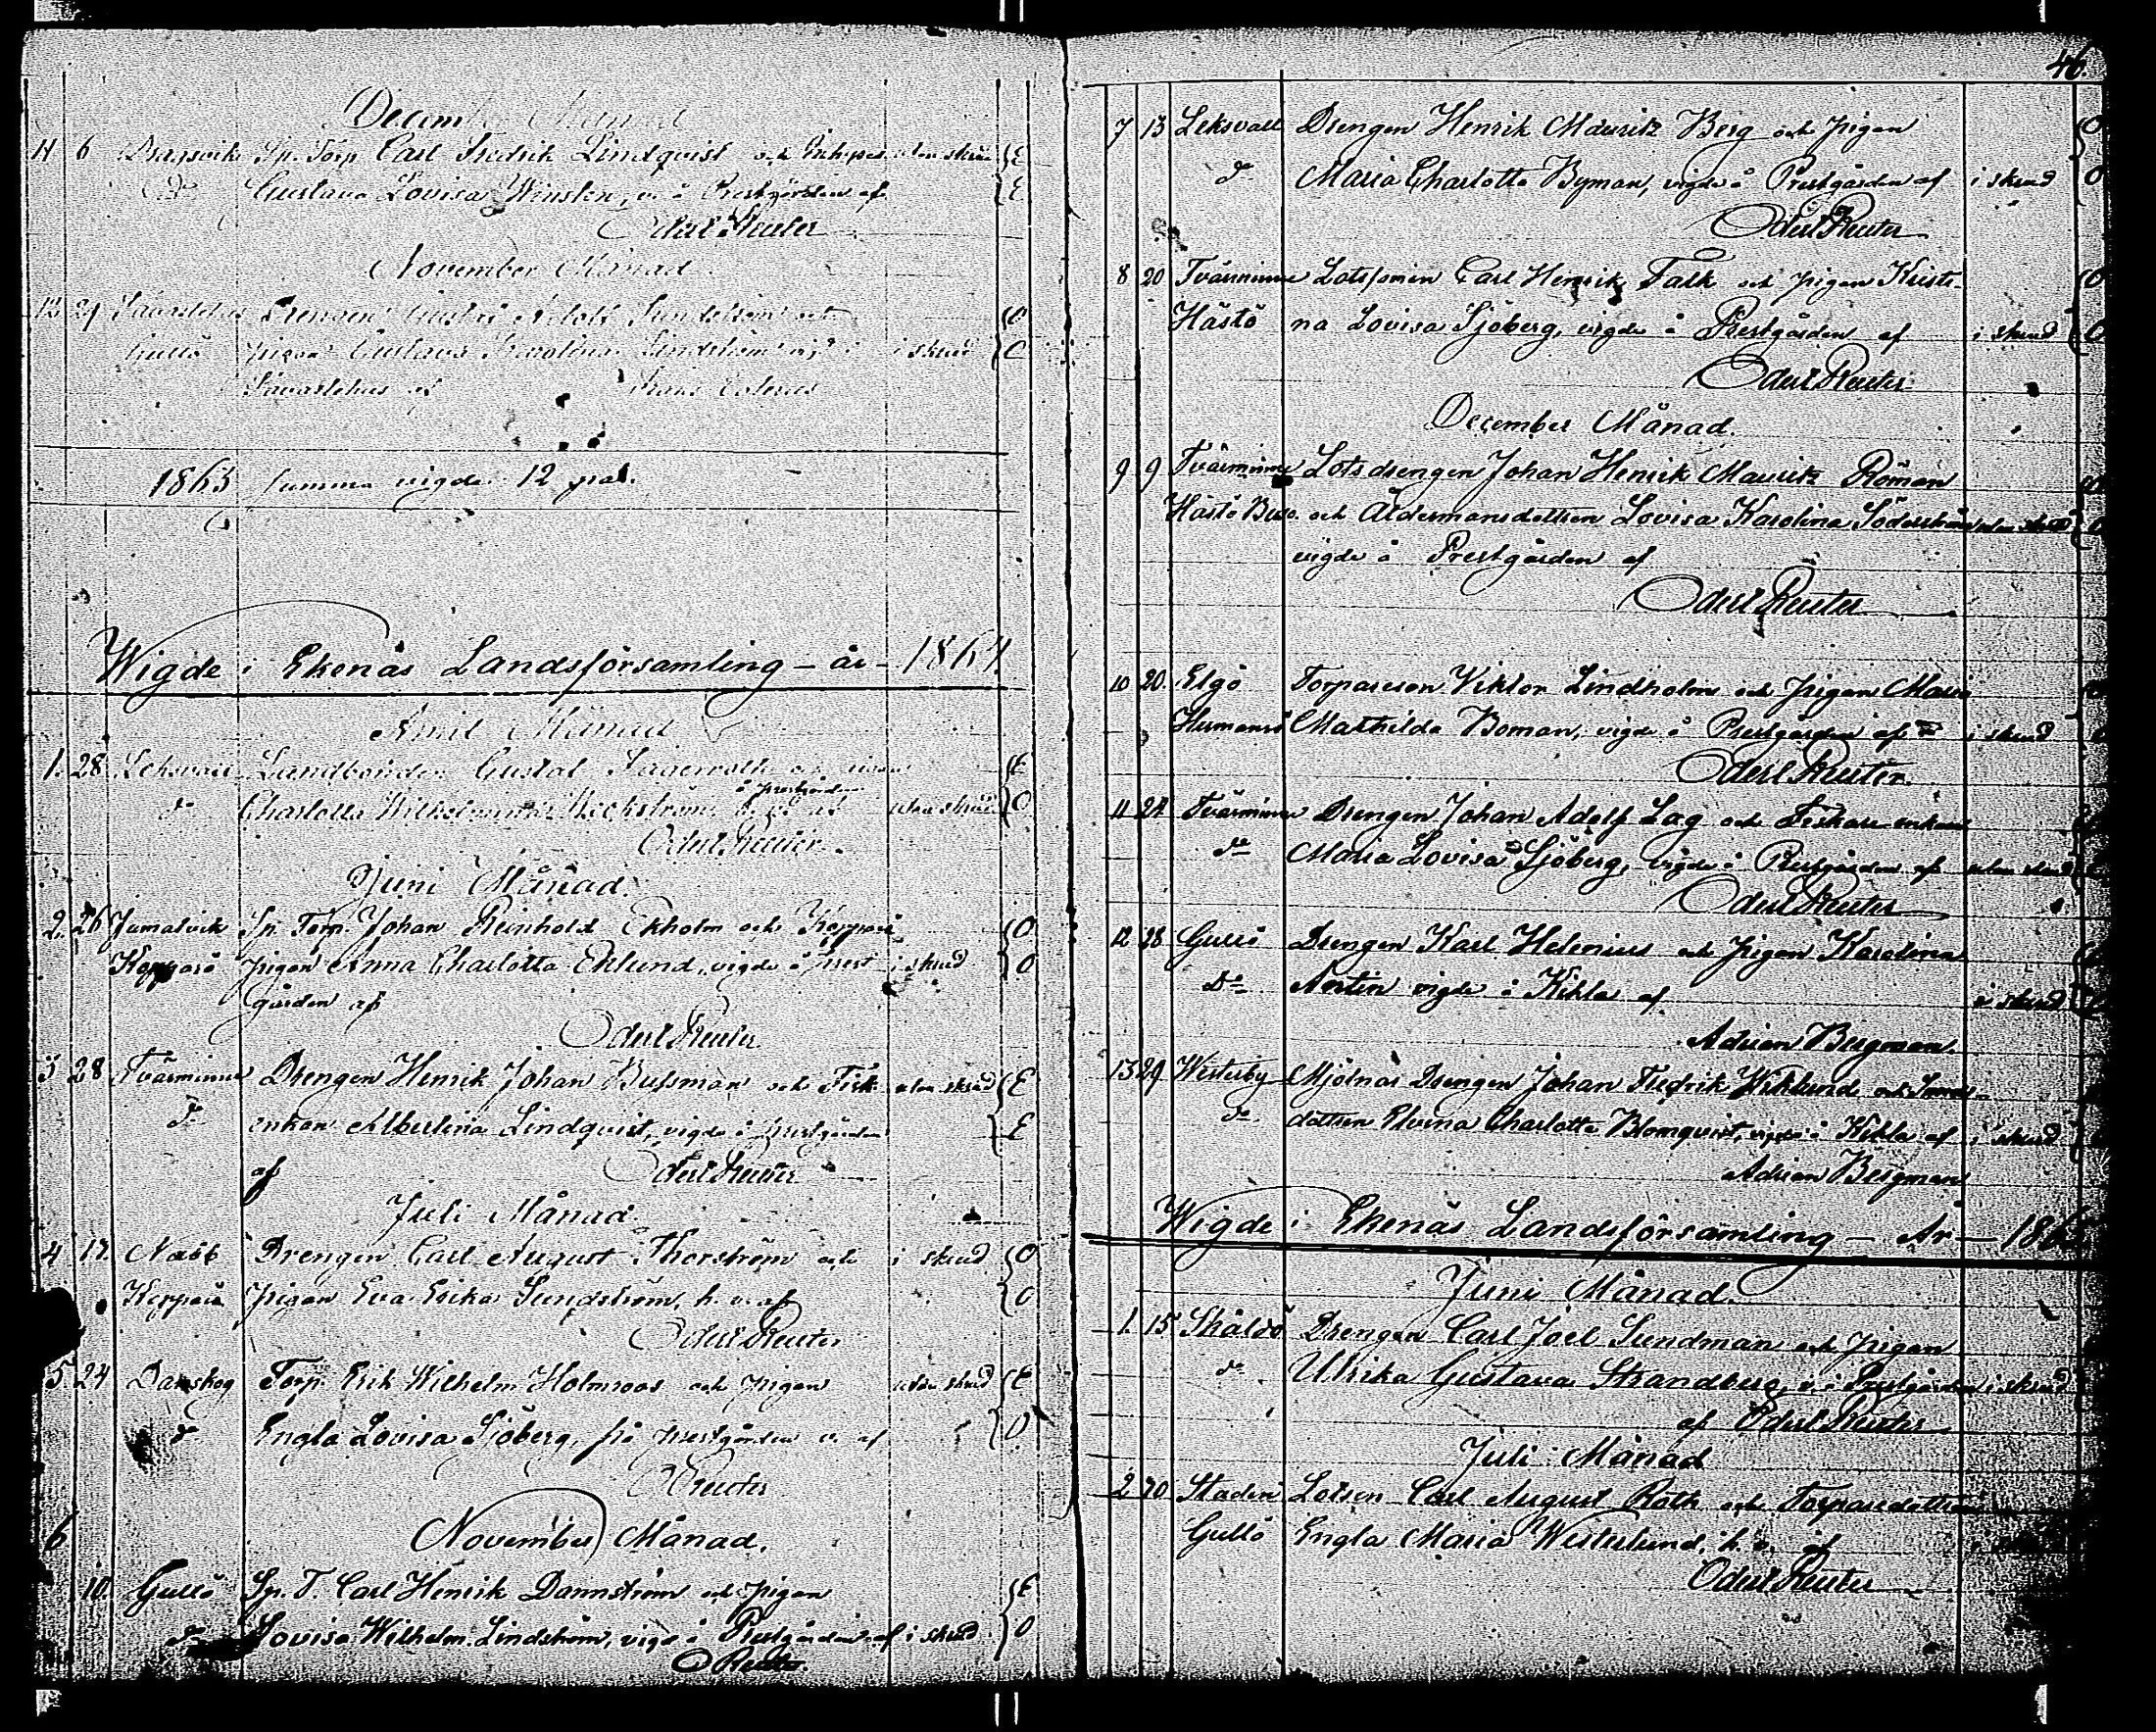 Decemb Månad
11 6 Dragsvik Sp. Torp. Carl Fredrik Lindqvist och Enkepig. utan skrud E
do Gustava Lovisa Winsten, v. å Prestgården af E
Oderl Reuter
November Månad
12. 29 Drengen Gustaf Adolf Sundström och O
Gullö pigan Gustava Karolina Lindström vigd i skrud O
af Frans
1863 summa vigde 12 par.
Wigde i Ekenäs Landsförsamling – år – 1864
April Månad
1. 28 Leksvall Landbonden Gustaf Fagerroth E
å prestgården
do Charlotta Wilhelmina af utan skrud O
Oderl Reuter
Juni Månad.
2. 26 Jumalvik Sp. Torp. Johan Reinhold Ekholm och Kopparö O
Kopparö pigan Anna Charlotta Eklund, vigde å prest i skrud O
gården af
Oderl Reuter
3 28 Tvärminne Drengen Henrik Johan Bussman och Fisk. utan skrud E
do enkan Albertina Lindqvist, vigde å prestgården E
af Oderl Reuter
Juli Månad
4 17. Nabb Drengen Carl August Thorström och i skrud O
Kopparö Pigan Eva Erika Sundström, h. v. af O
Oderl Reuter
5 24 Danskog Torp. Erik Wilhelm Holmroos och pigan utan skrud E
do Engla Lovisa Sjöberg, på prestgården v. af O
O Reuter
6 November Månad.
10. Gullö Sp. T. Carl Henrik Dannström och pigan E
do Lovisa Wilhelm. Lindström, vigd å Prestgården af i skrud O
O Reuter.
46.
7 13 Leksvall Drengen Henrik Mauritz Berg och pigan O
do Maria Charlotta Byman, vigde å Prestgården af i skrud O
Oderl Reuter
8 20 Tvärminne Lotsfomin Carl Henrik Falk och pigan Kristi- O
Hästö na Lovisa Sjöberg, vigde å Prestgården af i skrud O
Oderl Reuter
December Månad.
9 9 Tvärminne Lotsdrengen Johan Henrik Mauritz Röman
Hästö Busö. och Åldermansdottren Lovisa Karolina Söderström utan skrud
vigde å Prestgården af
Oderl Reuter
10 20. Elgö Torpareson Viktor Lindholm och pigan Maria
Hermansö Mathilda Boman, vigde å Prestgården af i skrud
Oderl Reuter
11 27 Tvärminne Drengen Johan Adolf Lag och Fiskare enkan
do Maria Lovisa Sjöberg, vigde å Prestgården af utan skrud
Oderl Reuter
12 28 Gullö Drengen Karl Helenius och pigan Karolina
Do Antin vigde å Kihla af i skrud
Adrian Bergman.
13 29 Westerby Mjölnar Drengen Johan Fredrik Wiklund och
do. dottren Elvina Charlotta Blomqvist, vigde å Kihla af i skrud
Adrian Bergman
Wigde i Ekenäs Landsförsamling – År – 186
Juni Månad.
1. 15 Skåldö Drengen Carl Joel Sundman och pigan
do Ulrika Gustava Strandberg, v. i Prestgården i skrud
af Oderl Reuter
Juli Månad
2 20 Staden Lotsen Carl August Roth och Torparedottren
Gullö Engla Maria Westerlund, h. v. af
Oderl Reuter